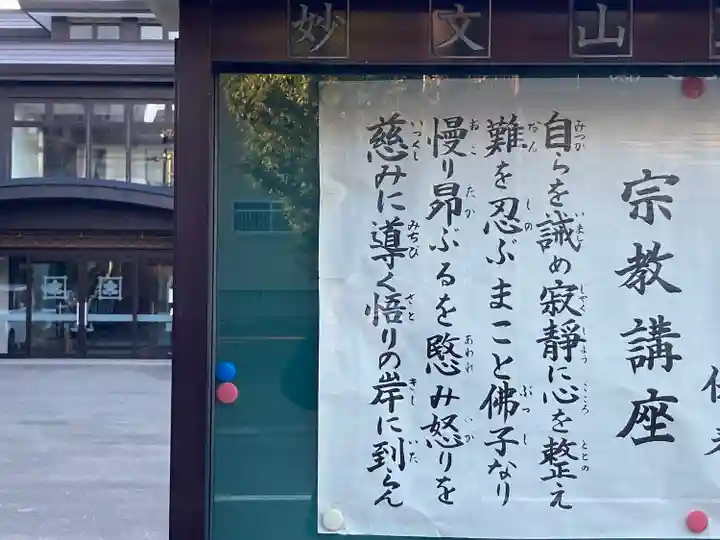 妙文山
宗教講座
自らを誡め寂靜に心を整え
難を忍ぶまこと佛子なり
慢り昂ぶるを愍み怒りを
慈みに導く悟りの岸に到らん
みつか
いまし
しゃくじょう
こころ
ととの
なん
しの
ぶっし
おこ
たか
あわれ
いか
いつくし
みちび
さと
きし
いた